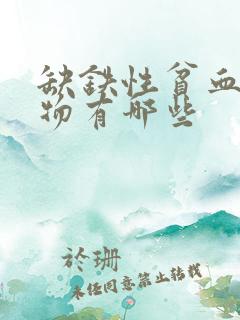 缺铁性贫血
物有哪些
於珊
未经同意禁止转载